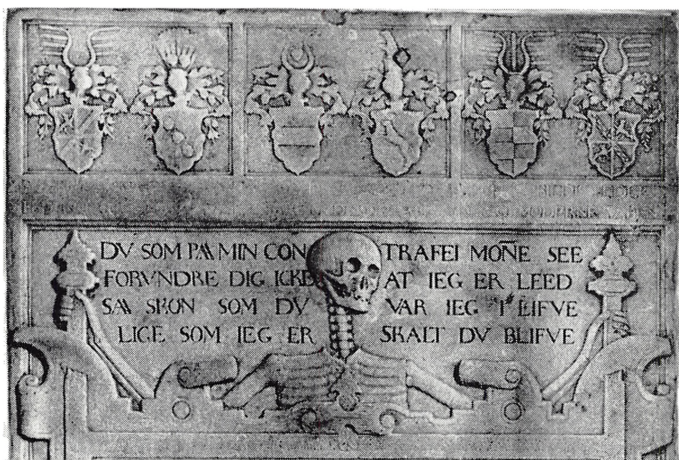 DV SOM PAA MIN CON TRAFEI MOÑE SEE
FORVNDRE DIG ICKE AT IEG ER LEED
SAA SKØN SOM DV VAR IEG I LIFVE
LIGE SOM IEG ER SKALT DV BLIFVE